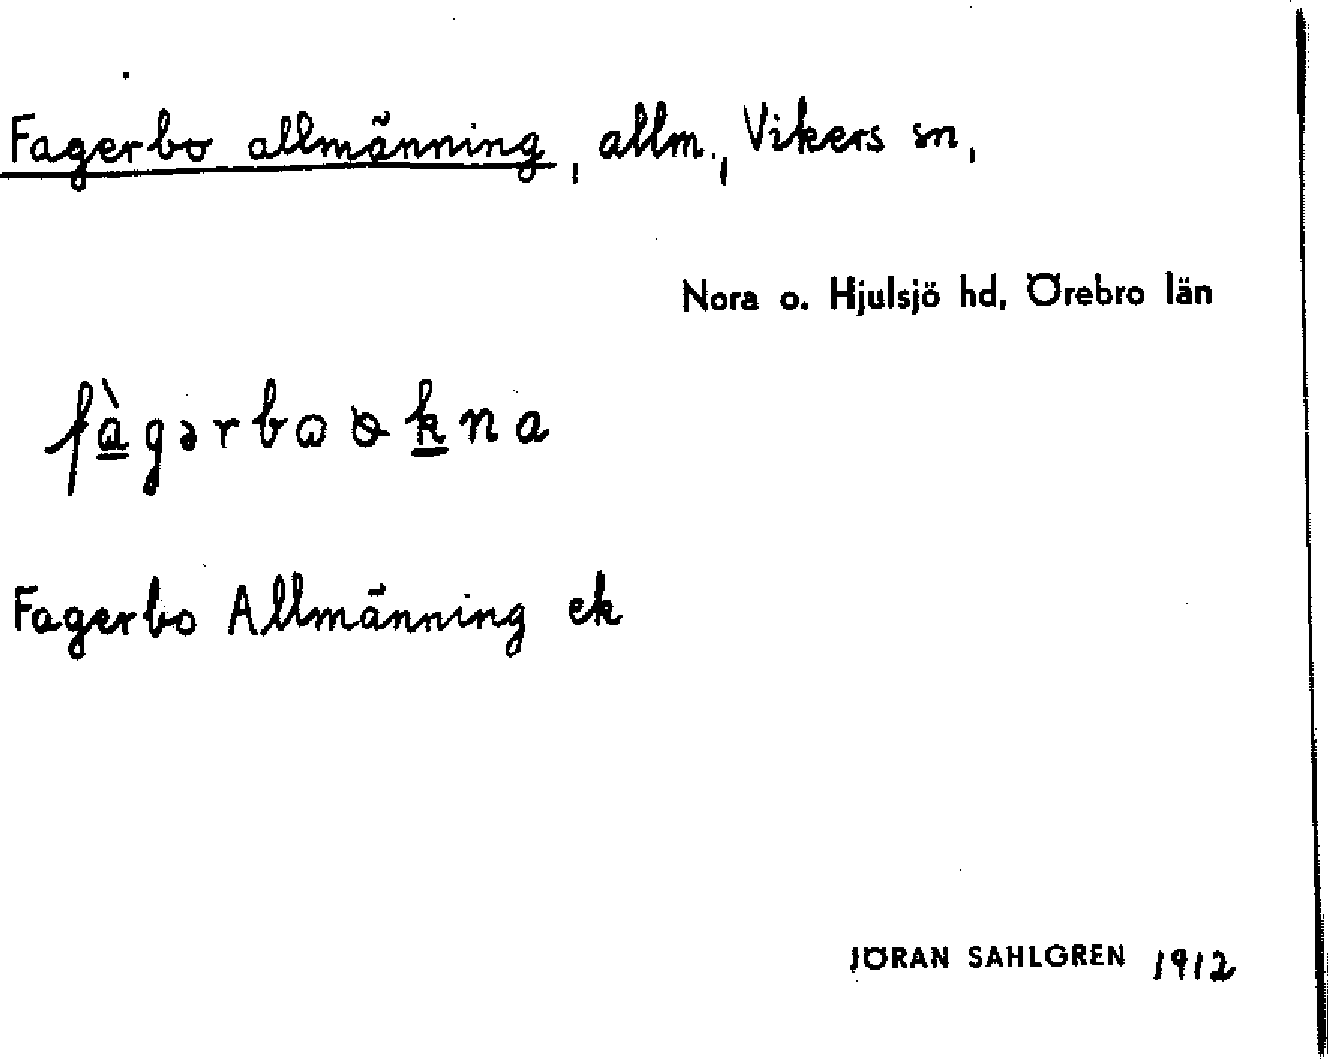 Fagerbo allmänning, allm., Vikers sn,
Nora o. Hjulsjö hd, Örebro län
Fagerbo Allmänning ek
JÖRAN SAHLGREN 1912